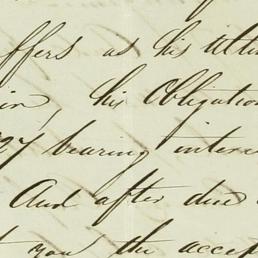 offers as his ultim
in, his Obligation
27 bearing interes
And after due
you the accep